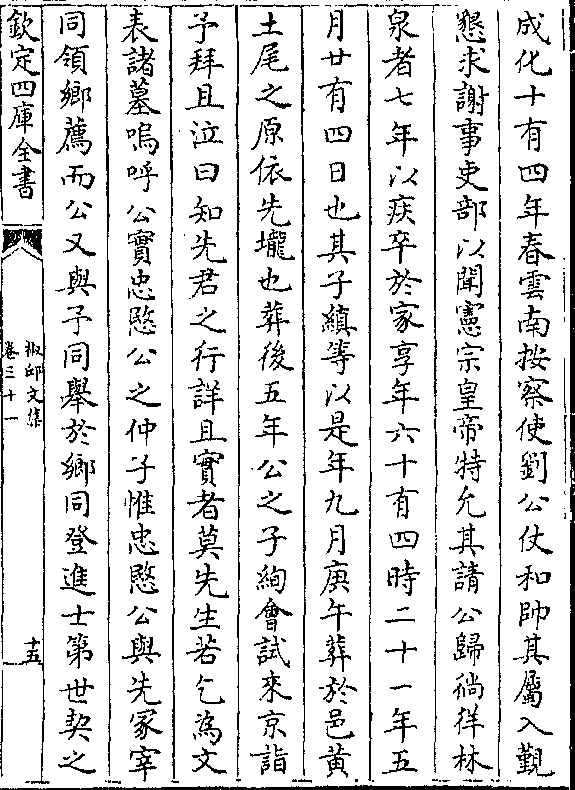 成化十有四年春雲南按察使劉公仗和帥其屬入覲
懇求謝事吏部以聞憲宗皇帝特允其請公歸徜徉林
泉者七年以疾卒於家享年六十有四時二十一年五
月廿有四日也其子縝等以是年九月庚午葬於邑黃
土尾之原依先壠也葬後五年公之子絢會試來京詣
予拜且泣曰知先君之行詳且實者莫先生若乞為文
表諸墓嗚呼公實忠愍公之仲子惟忠愍公與先冢宰
同領鄉薦而公又與予同舉於鄉同登進士第世契之
欽定四庫全書
椒邱文集
卷三十一
十五